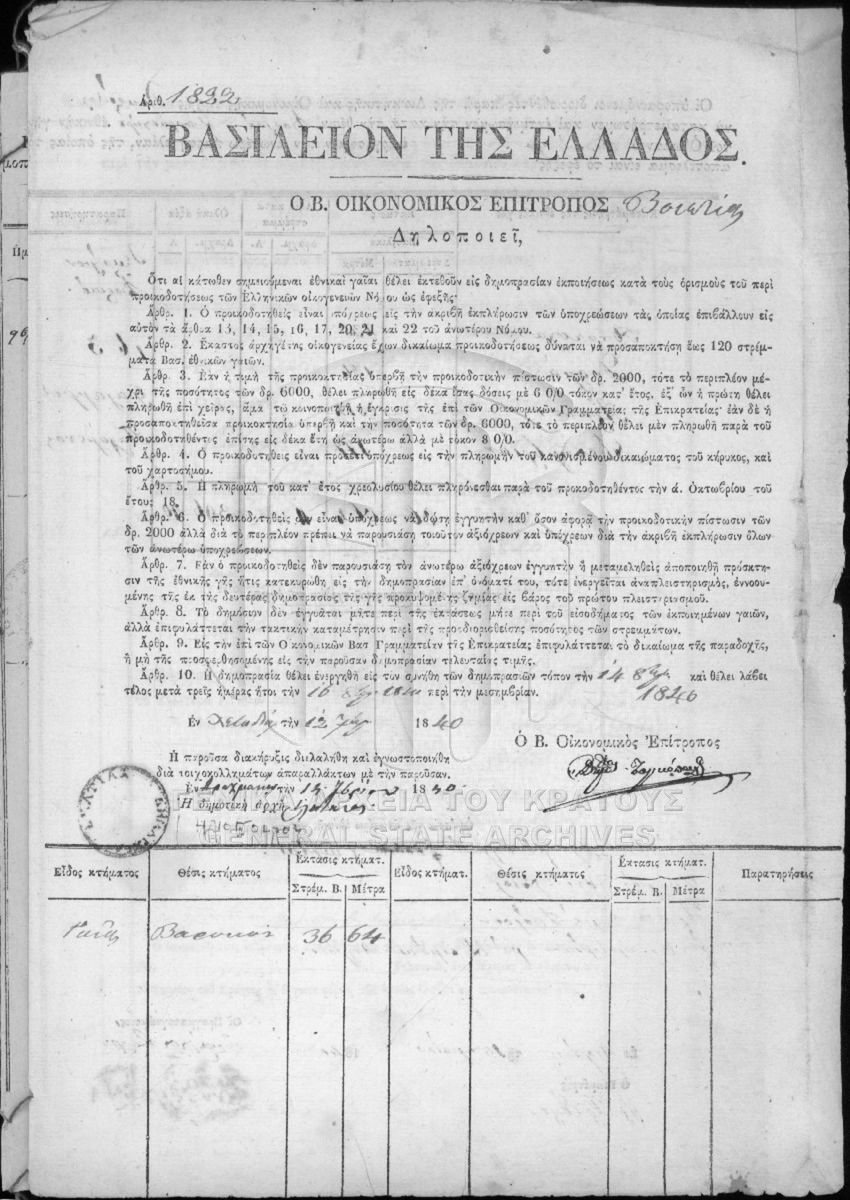 Ἀριθ. 1822
ΒΑΣΙΛΕΙΟΝ ΤΗΣ ΕΛΛΑΔΟΣ.
Ο Β. ΟΙΚΟΝΟΜΙΚΟΣ ΕΠΙΤΡΟΠΟΣ Βοιωτίας
Δηλοποιεῖ,
Ὅτι αἱ κάτωθεν σημειούμεναι ἐθνικαὶ γαῖαι θέλει ἐκτεθοῦν εἰς δημοπρασίαν ἐκποιήσεως κατὰ τοὺς ὁρισμοὺς τοῦ περὶ
προικοδοτήσεως τῶν Ἑλληνικῶν οἰκογενειῶν Νόμου ὡς ἐφεξῆς·
Ἄρθρ. 1. Ὁ προικοδοτηθεὶς εἶναι ὑπόχρεως εἰς τὴν ἀκριβῆ ἐκπλήρωσιν τῶν ὑποχρεώσεων τὰς ὁποίας ἐπιβάλλουν εἰς
αὐτὸν τὰ ἄρθρα 13, 14, 15, 16, 17, 20, 21 καὶ 22 τοῦ ἀνωτέρου Νόμου.
Ἄρθρ. 2. Ἕκαστος ἀρχηγέτης οἰκογενείας ἔχων δικαίωμα προικοδοτήσεως δύναται νὰ προσαποκτήσῃ ἕως 120 στρέμ-
ματα Βασ. ἐθνικῶν γαιῶν.
Ἄρθρ. 3. Ἐὰν ἡ τιμὴ τῆς προικοκτησίας ὑπερβῇ τὴν προικοδοτικὴν πίστωσιν τῶν δρ. 2000, τότε τὸ περιπλέον μέ-
χρι τῆς ποσότητος τῶν δρ. 6000, θέλει πληρωθῆ εἰς δέκα ἴσας δόσεις μὲ 6 0/0 τόκον κατ' ἔτος, ἐξ ὧν ἡ πρώτη θέλει
πληρωθῆ ἐπὶ χεῖρας, ἅμα τῷ κοινοποιηθῇ ἡ ἔγκρισις τῆς ἐπὶ τῶν Οἰκονομικῶν Γραμματείας τῆς Ἐπικρατείας· ἐὰν δὲ ἡ
προσαποκτηθεῖσα προικοκτησία ὑπερβῇ καὶ τὴν ποσότητα τῶν δρ. 6000, τότε τὸ περιπλέον θέλει μὲν πληρωθῆ παρὰ τοῦ
προικοδοτηθέντος ἐπίσης εἰς δέκα ἔτη ὡς ἀνωτέρω ἀλλὰ μὲ τόκον 8 0/0.
Ἄρθρ. 4. Ὁ προικοδοτηθεὶς εἶναι προσέτι ὑπόχρεως εἰς τὴν πληρωμὴν τοῦ κανονισμένου δικαιώματος τοῦ κήρυκος, καὶ
τοῦ χαρτοσήμου.
Ἄρθρ. 5. Ἡ πληρωμὴ τοῦ κατ' ἔτος χρεολυσίου θέλει πληρόνεσθαι παρὰ τοῦ προκοδοτηθέντος τὴν ά. Ὀκτωβρίου τοῦ
ἔτους 18
Ἄρθρ. 6. Ὁ προικοδοτηθεὶς δὲν εἶναι ὑπόχρεως νὰ δώσῃ ἐγγυητὴν καθ' ὅσον ἀφορᾷ τὴν προικοδοτικὴν πίστωσιν τῶν
δρ. 2000 ἀλλὰ διὰ τὸ περιπλέον πρέπει νὰ παρουσιάσῃ τοιοῦτον ἀξιόχρεων καὶ ὑπόχρεων διὰ τὴν ἀκριβῆ ἐκπλήρωσιν ὅλων
τῶν ἀνωτέρω ὑποχρεώσεων.
Ἄρθρ. 7. Ἐὰν ὁ προικοδοτηθεὶς δὲν παρουσιάσῃ τὸν ἀνωτέρω ἀξιόχρεων ἐγγυητὴν ἢ μεταμεληθεὶς ἀποποιηθῇ πρόσκτη-
σιν τῆς ἐθνικῆς γῆς ἥτις κατεκυρώθη εἰς τὴν δημοπρασίαν ἐπ' ὀνόματί του, τότε ἐνεργεῖται ἀναπλειστηρισμὸς, ἐννοου-
μένης τῆς ἐκ τῆς δευτέρας δημοπρασίας τῆς γῆς προκυψομένης ζημίας εἰς βάρος τοῦ πρώτου πλειστηριασμοῦ.
Ἄρθρ. 8. Τὸ δημόσιον δὲν ἐγγυᾶται μήτε περὶ τῆς ἐκτάσεως μήτε περὶ τοῦ εἰσοδήματος τῶν ἐκποιημένων γαιῶν,
ἀλλὰ ἐπιφυλάττεται τὴν τακτικὴν καταμέτρησιν περὶ τῆς προσδιορισθείσης ποσότητος τῶν στρεμμάτων.
Ἄρθρ. 9. Εἰς τὴν ἐπὶ τῶν Οἰκονομικῶν Βασ Γραμματείαν τῆς Ἐπικρατείας ἐπιφυλάττεται τὸ δικαίωμα τῆς παραδοχῆς,
ἢ μὴ τῆς προσφερθησομένης εἰς τὴν παροῦσαν δημοπρασίαν τελευταίας τιμῆς.
Ἄρθρ. 10. Ἡ δημοπρασία θέλει ἐνεργηθῆ εἰς τὸν συνήθη τῶν δημοπρασιῶν τόπον τὴν 14 8βρ καὶ θέλει λάβει
1840
τέλος μετὰ τρεῖς ἡμέρας ἤτοι τὴν 16 περὶ τὴν μεσημβρίαν.
Ἐν τὴν 12 1840
Ὁ Β. Οἰκονομικὸς Ἐπίτροπος
Ἡ παροῦσα διακήρυξις διελαλήθη καὶ ἐγνωστοποιήθη
διὰ τοιχοκολλημάτων ἀπαραλλάκτων μὲ τὴν παροῦσαν.
Ἐν Δραχμάνι τὴν 1840
Ἡ δημοτικὴ ἀρχὴ Ἐλατείας
ΑΡΧΕΙΑ ΤΟΥ ΚΡΑΤΟΥΣ
GENERAL STATE ARCHIVES
Εἶδος κτήματος Θέσις κτήματος Ἔκτασις κτήματ. Εἶδος κτήματ. Θέσις κτήματος Ἔκτασις κτήματ. Παρατηρήσεις
Στρέμ. Β. Μέτρα Στρέμ. Β. Μέτρα
Γαῖαι 36 64